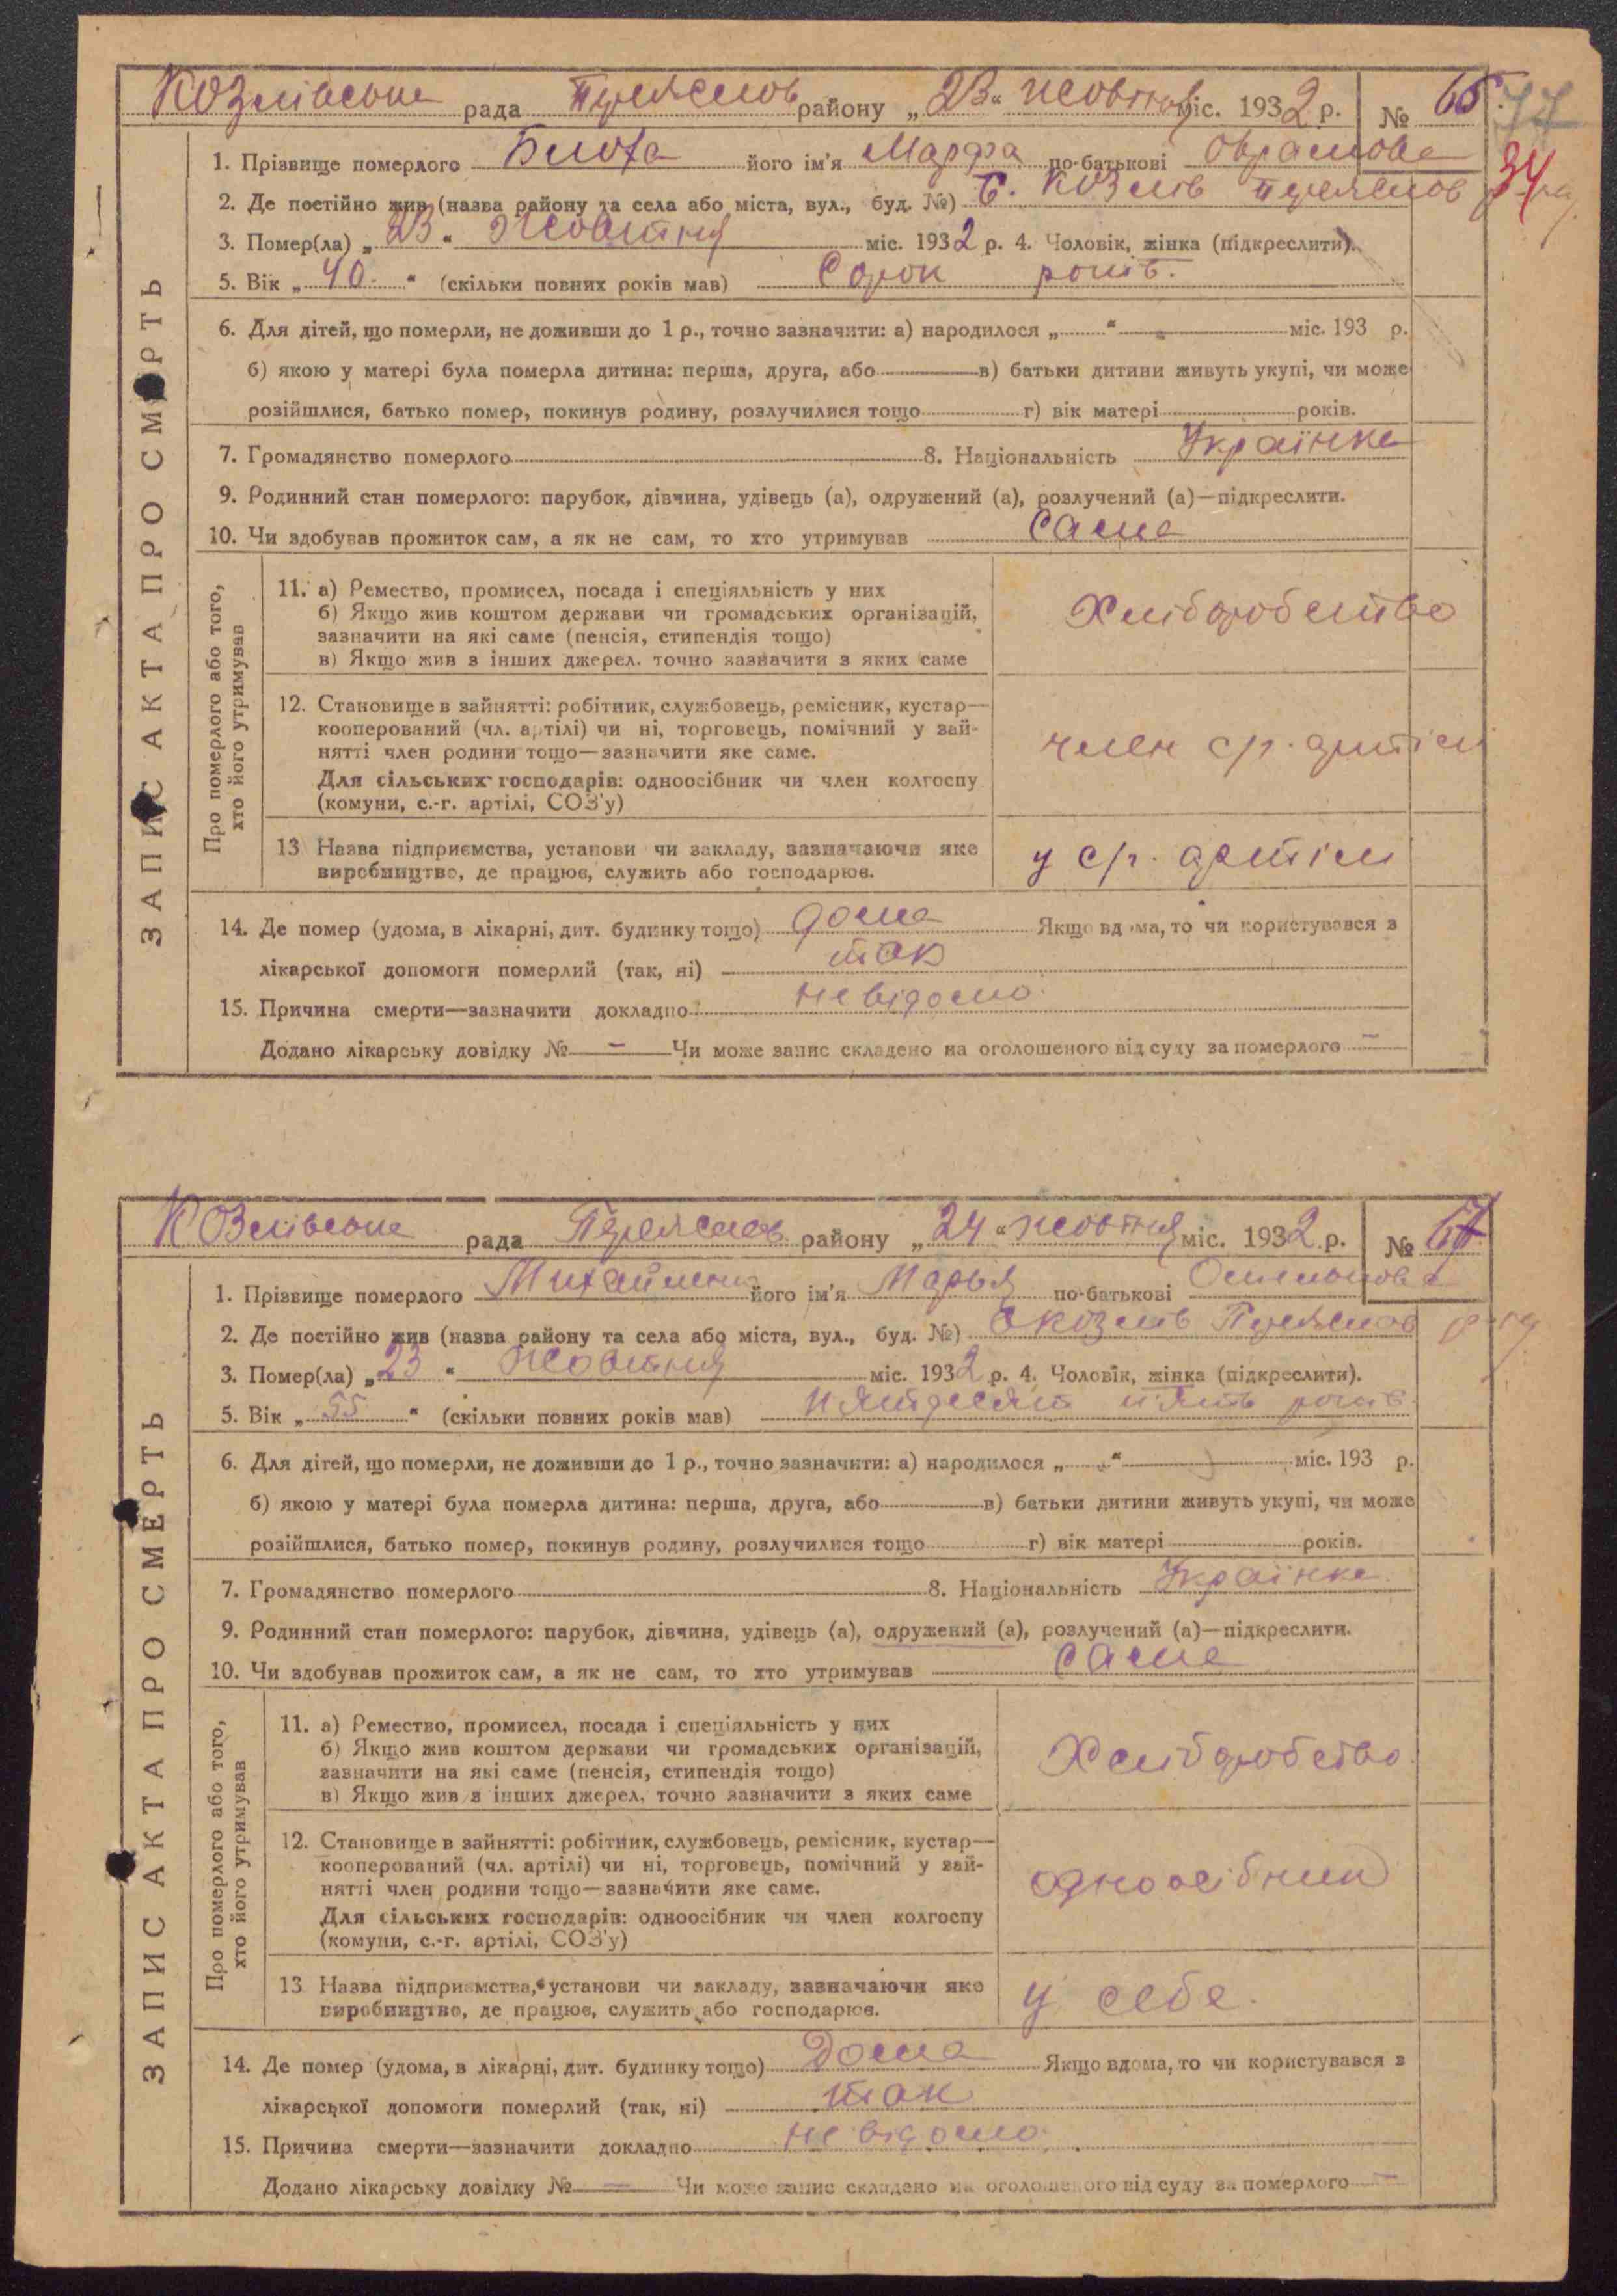 Козлівська рада Переяслов району „23“ жовтня міс. 1932 р. № 66.
77
34
1. Прізвище померлого Блоха його ім'я Марфа по-батькові Оврамова
2. Де постійно жив (назва району та села або міста, вул., буд. №) С. Козлів Переяслов
3. Помер(ла) „23“ Жовтня міс. 1932 р. 4. Чоловік, жінка (підкреслити).
5. Вік „40“ (скільки повних років мав) Сорок років.
6. Для дітей, що померли, не доживши до 1 р., точно зазначити: а) народилося „ “ міс. 193 р.
б) якою у матері була померла дитина: перша, друга, або в) батьки дитини живуть укупі, чи може
розійшлися, батько помер, покинув родину, розлучилися тощо г) вік матері років.
7. Громадянство померлого 8. Національність Українка
9. Родинний стан померлого: парубок, дівчина, удівець (а), одружений (а), розлучений (а)—підкреслити.
10. Чи здобував прожиток сам, а як не сам, то хто утримував сама
ЗАПИС АКТА ПРО СМЕРТЬ
Про померлого або того,
хто його утримував
11. а) Ремество, промисел, посада і спеціяльність у них
б) Якщо жив коштом держави чи громадських організацій,
зазначити на які саме (пенсія, стипендія тощо)
в) Якщо жив з інших джерел. точно зазначити з яких саме
Хліборобство
12. Становище в зайнятті: робітник, службовець, ремісник, кустар—
кооперований (чл. артілі) чи ні, торговець, помічний у зай-
нятті член родини тощо—зазначити яке саме.
Для сільських господарів: одноосібник чи член колгоспу
(комуни, с.-г. артілі, СОЗ'у)
член с/г. артіли
13 Назва підприємства, установи чи закладу, зазначаючи яке
виробництво, де працює, служить або господарює.
у с/г. артіли
14. Де помер (удома, в лікарні, дит. будинку тощо) дома Якщо вдома, то чи користувався з
лікарської допомоги померлий (так, ні) так
15. Причина смерти—зазначити докладно невідомо
Додано лікарську довідку № — Чи може запис складено на оголошеного від суду за померлого —
Козлівська рада Переяслов району „24“ жовтня міс. 1932 р. № 67
1. Прізвище померлого його ім'я Марья по-батькові
2. Де постійно жив (назва району та села або міста, вул., буд. №) С Козлів Переяслов
3. Помер(ла) „23“ Жовтня міс. 1932 р. 4. Чоловік, жінка (підкреслити).
5. Вік „55“ (скільки повних років мав) пятдесят пять років
6. Для дітей, що померли, не доживши до 1 р., точно зазначити: а) народилося „ “ міс. 193 р.
б) якою у матері була померла дитина: перша, друга, або в) батьки дитини живуть укупі, чи може
розійшлися, батько помер, покинув родину, розлучилися тощо г) вік матері років.
7. Громадянство померлого 8. Національність Українка
9. Родинний стан померлого: парубок, дівчина, удівець (а), одружений (а), розлучений (а)—підкреслити.
10. Чи здобував прожиток сам, а як не сам, то хто утримував сама
ЗАПИС АКТА ПРО СМЕРТЬ
Про померлого або того,
хто його утримував
11. а) Ремество, промисел, посада і спеціяльність у них
б) Якщо жив коштом держави чи громадських організацій,
зазначити на які саме (пенсія, стипендія тощо)
в) Якщо жив з інших джерел, точно зазначити з яких саме
Хліборобство
12. Становище в зайнятті: робітник, службовець, ремісник, кустар—
кооперований (чл. артілі) чи ні, торговець, помічний у зай-
нятті член родини тощо—зазначити яке саме.
Для сільських господарів: одноосібник чи член колгоспу
(комуни, с.-г. артілі, СОЗ'у)
одноосібник
13 Назва підприємства, установи чи закладу, зазначаючи яке
виробництво, де працює, служить або господарює.
у себе.
14. Де помер (удома, в лікарні, дит. будинку тощо) Дома Якщо вдома, то чи користувався з
лікарської допомоги померлий (так, ні) так
15. Причина смерти—зазначити докладно невідомо
Додано лікарську довідку № — Чи може запис складено на оголошеного від суду за померлого —